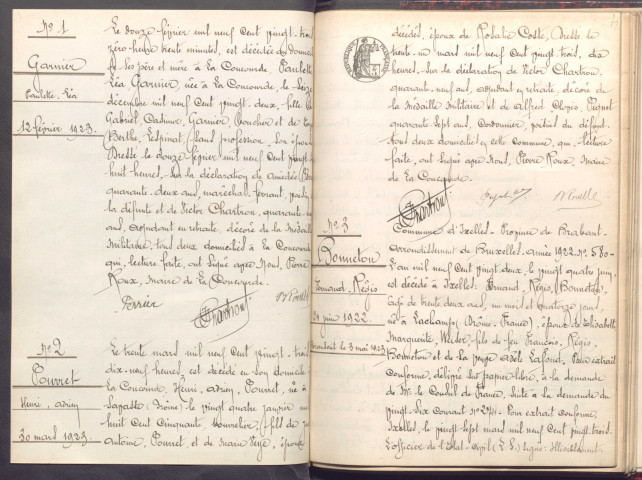 No 1
Garnier
Paulette Léa
12 février 1923.
Le douze février mil neuf cent vingt-trois
zéro heure trente minutes, est décédée au domicile
de ses père et mère à La Concourde, Paulette
Léa, Garnier, née à La Concourde, le seize
décembre mil neuf cent vingt-deux, fille de
Gabriel Casimir, Garnier boucher et de
Berthe, Lespinat, sans profession, son épouse
Dressé le douze février mil neuf cent vingt
huit heures, sur la déclaration de Amédée
quarante-deux ans, maréchal-ferrant,
la défunte et de Victor Chartron, quarante-
ans, adjudant en retraite, décoré de la médaille
militaire, tous deux domiciliés à La Concourde
qui, lecture faite, ont signé avec Nous, Pierre
Roux, maire de La Concourde.
Perrier Chartron
No 2
Pourret
Henri, Adrien
30 mars 1923.
Le trente mars mil neuf cent vingt-trois
dix-neuf heures, est décédé en son domicile
La Concourde, Henri, Adrien, Pourret, né à
(Drôme) le vingt quatre janvier mil
huit cent cinquante fils de
Antoine, Pourret et de Marie époux
décédés, époux de Rosalie Coste, Dressé le
trente-un mars mil neuf cent vingt-trois, dix
heures, sur la déclaration de Victor Chartron,
quarante-neuf ans, adjudant en retraite, décoré de
la médaille militaire et de Alfred
quarante-sept ans, cordonnier, du défunt
tous deux domiciliés en cette commune, qui, lecture
faite, ont signé avec Nous, Pierre Roux, maire
de La Concourde.
Chartron
No 3
Bonneton
Fernand, Régis
24 juin 1922.
transcrit le 3 mai 1923
Commune d'Ixelles - Province de Brabant -
Arrondissement de Bruxelles - année 1922 No 580
L'an mil neuf cent vingt-deux, le vingt quatre juin,
est décédé à Ixelles: Fernand, Régis, Bonneton,
âgé de trente deux ans, un mois et quatorze jours,
né à Lachamp (Drôme-France), époux de Elisabeth
Marguerite, fils de feu François, Régis,
Bonneton et de Adèle Lafond. Pour extrait
conforme, délivré sur papier libre, à la demande
de Mr le Consul de France, suite à la demande du
vingt-six courant No 2711 - Pour extrait conforme,
Ixelles, le vingt-sept mars mil neuf cent vingt-trois.
L'officier de l'Etat-Civil (L.S.) signé: Illisiblement.